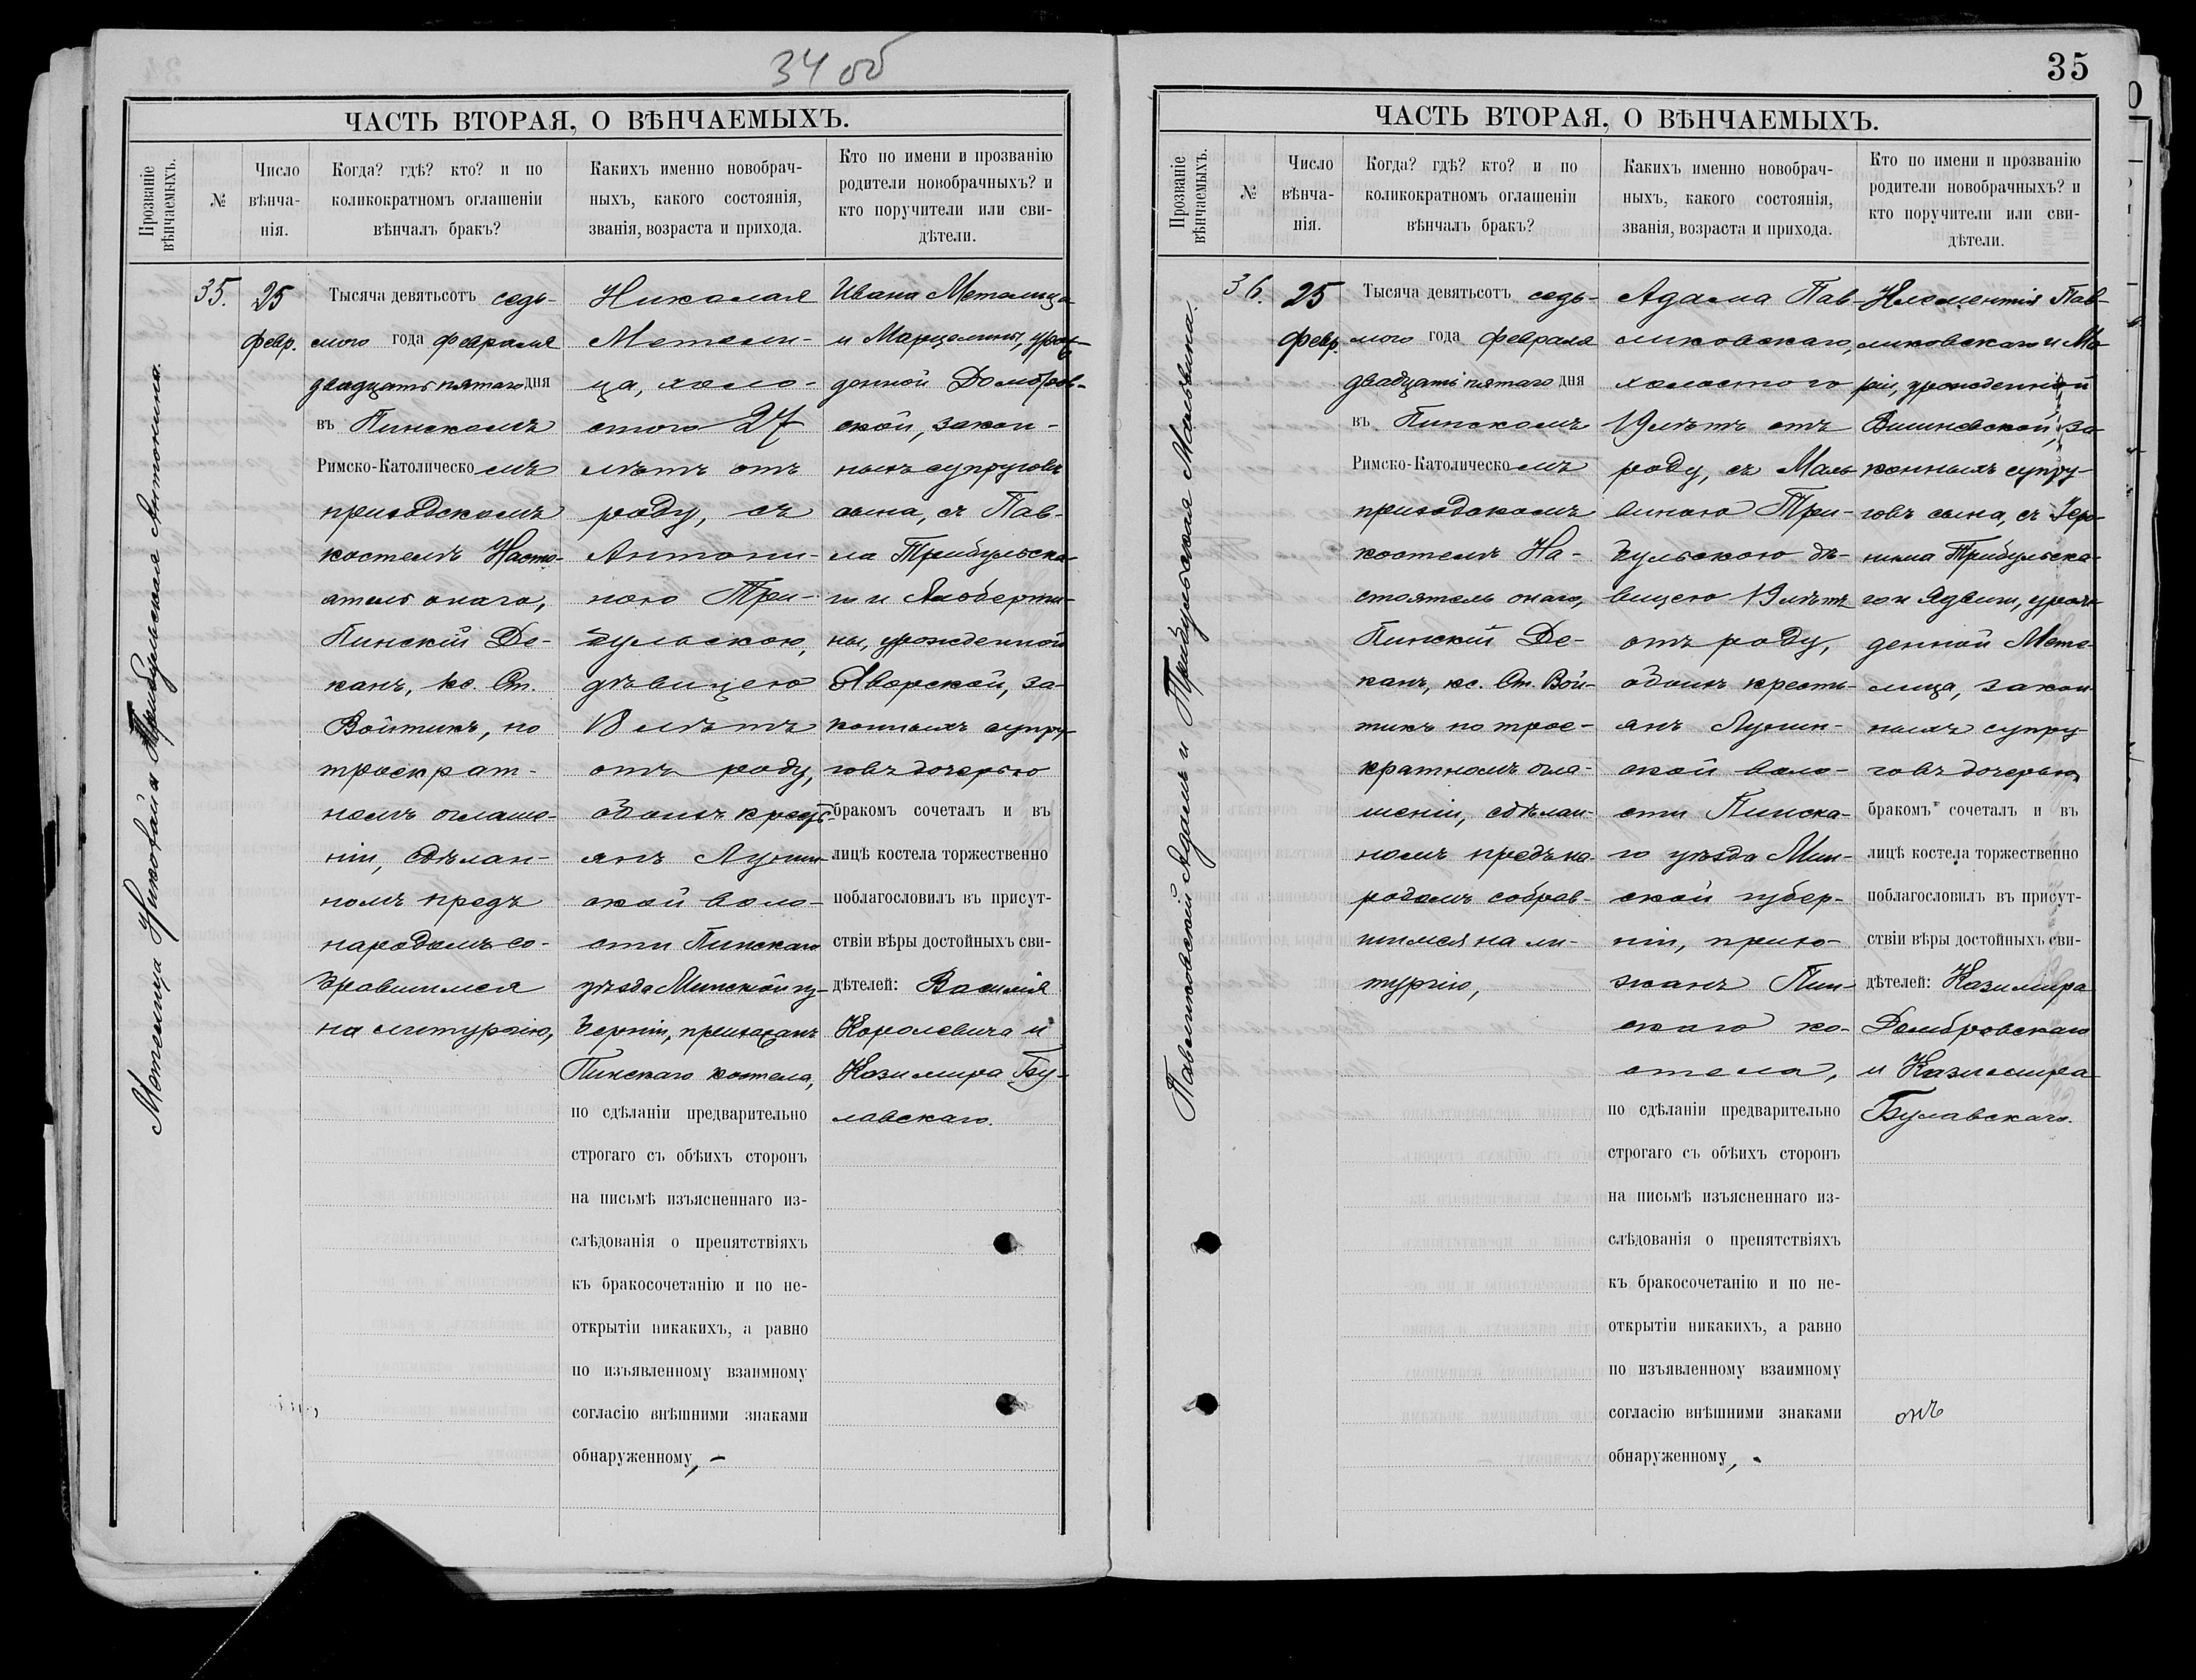 34 об
ЧАСТЬ ВТОРАЯ, О ВѢНЧАЕМЫХЪ.
Прозваніе
вѣнчаемыхъ.
№
Число
вѣнча-
нія.
Когда? гдѣ? кто? и по
коликократномъ оглашеніи
вѣнчалъ бракъ?
Какихъ именно новобрач-
ныхъ, какого состоянія,
званія, возраста и прихода.
Кто по имени и прозванію
родители новобрачныхъ? и
кто поручители или сви-
дѣтели.
Метелица Николай и Трибульская Антонина.
35.
25
февр.
Тысяча девятьсотъ седь-
мого года февраля
двадцать пятаго дня
въ Пинскомъ
Римско-Католическомъ
приходскомъ
костелѣ Насто-
ятель онаго,
Пинскій Де-
канъ, кс. Ст.
Войтикъ, по
троекрат-
номъ оглаше-
ніи, сдѣлан-
номъ предъ
народомъ со-
бравшимся
на литургію,
Николая
Метели-
ца, холо-
стого 27
лѣтъ отъ
роду, съ
Антони-
ною Три-
бульскою,
дѣвицею
18 лѣтъ
отъ роду,
обоихъ кресть-
янъ Лунин-
ской воло-
сти Пинскаго
уѣзда Минской гу-
берніи, прихожанъ
Пинскаго костела,
по сдѣланіи предварительно
строгаго съ обѣихъ сторонъ
на письмѣ изъясненнаго из-
слѣдованія о препятствіяхъ
къ бракосочетанію и по не-
открытіи никакихъ, а равно
по изъявленному взаимному
согласію внѣшними знаками
обнаруженному, –
Ивана Метелица
и Марцелины, урож-
денной Домбров-
ской, закон-
ныхъ супруговъ
сына, съ Пав-
ла Трибульска-
го и Альберти-
ны, урожденной
Яворской, за-
конныхъ супру-
говъ дочерью
бракомъ сочеталъ и въ
лицѣ костела торжественно
поблагословилъ въ присут-
ствіи вѣры достойныхъ сви-
дѣтелей: Василія
Королевича и
Казимира Бу-
лавскаго.
35
ЧАСТЬ ВТОРАЯ, О ВѢНЧАЕМЫХЪ.
Прозваніе
вѣнчаемыхъ.
№
Число
вѣнча-
нія.
Когда? гдѣ? кто? и по
коликократномъ оглашеніи
вѣнчалъ бракъ?
Какихъ именно новобрач-
ныхъ, какого состоянія,
званія, возраста и прихода.
Кто по имени и прозванію
родители новобрачныхъ? и
кто поручители или сви-
дѣтели.
Павликовскій Адамъ и Трибульская Мальвина.
36.
25
февр.
Тысяча девятьсотъ седь-
мого года февраля
двадцать пятаго дня
въ Пинскомъ
Римско-Католическомъ
приходскомъ
костелѣ На-
стоятель онаго,
Пинскій Де-
канъ, кс. Ст. Вой-
тикъ по трое-
кратномъ огла-
шеніи, сдѣлан-
номъ предъ на-
родомъ собрав-
шимся на ли-
тургію,
Адама Пав-
ликовскаго,
холостого
19 лѣтъ отъ
роду, съ Маль-
виною Три-
бульскою дѣ-
вицею 19 лѣтъ
отъ роду,
обоихъ кресть-
янъ Лунин-
ской воло-
сти Пинска-
го уѣзда Мин-
ской губер-
ніи, прихо-
жанъ Пин-
скаго ко-
стела,
по сдѣланіи предварительно
строгаго съ обѣихъ сторонъ
на письмѣ изъясненнаго из-
слѣдованія о препятствіяхъ
къ бракосочетанію и по не-
открытіи никакихъ, а равно
по изъявленному взаимному
согласію внѣшними знаками
обнаруженному, -
Клементія Пав-
ликовскаго и Ма-
ріи, урожденной
Вишневской, за-
конныхъ супру-
говъ сына, съ Іеро-
нима Трибульска-
го и Ядвиги, урож-
денной Мете-
лица, закон-
ныхъ супру-
говъ дочерью
бракомъ сочеталъ и въ
лицѣ костела торжественно
поблагословилъ въ присут-
ствіи вѣры достойныхъ сви-
дѣтелей: Казимира
Домбровскаго
и Казимира
Булавскаго.